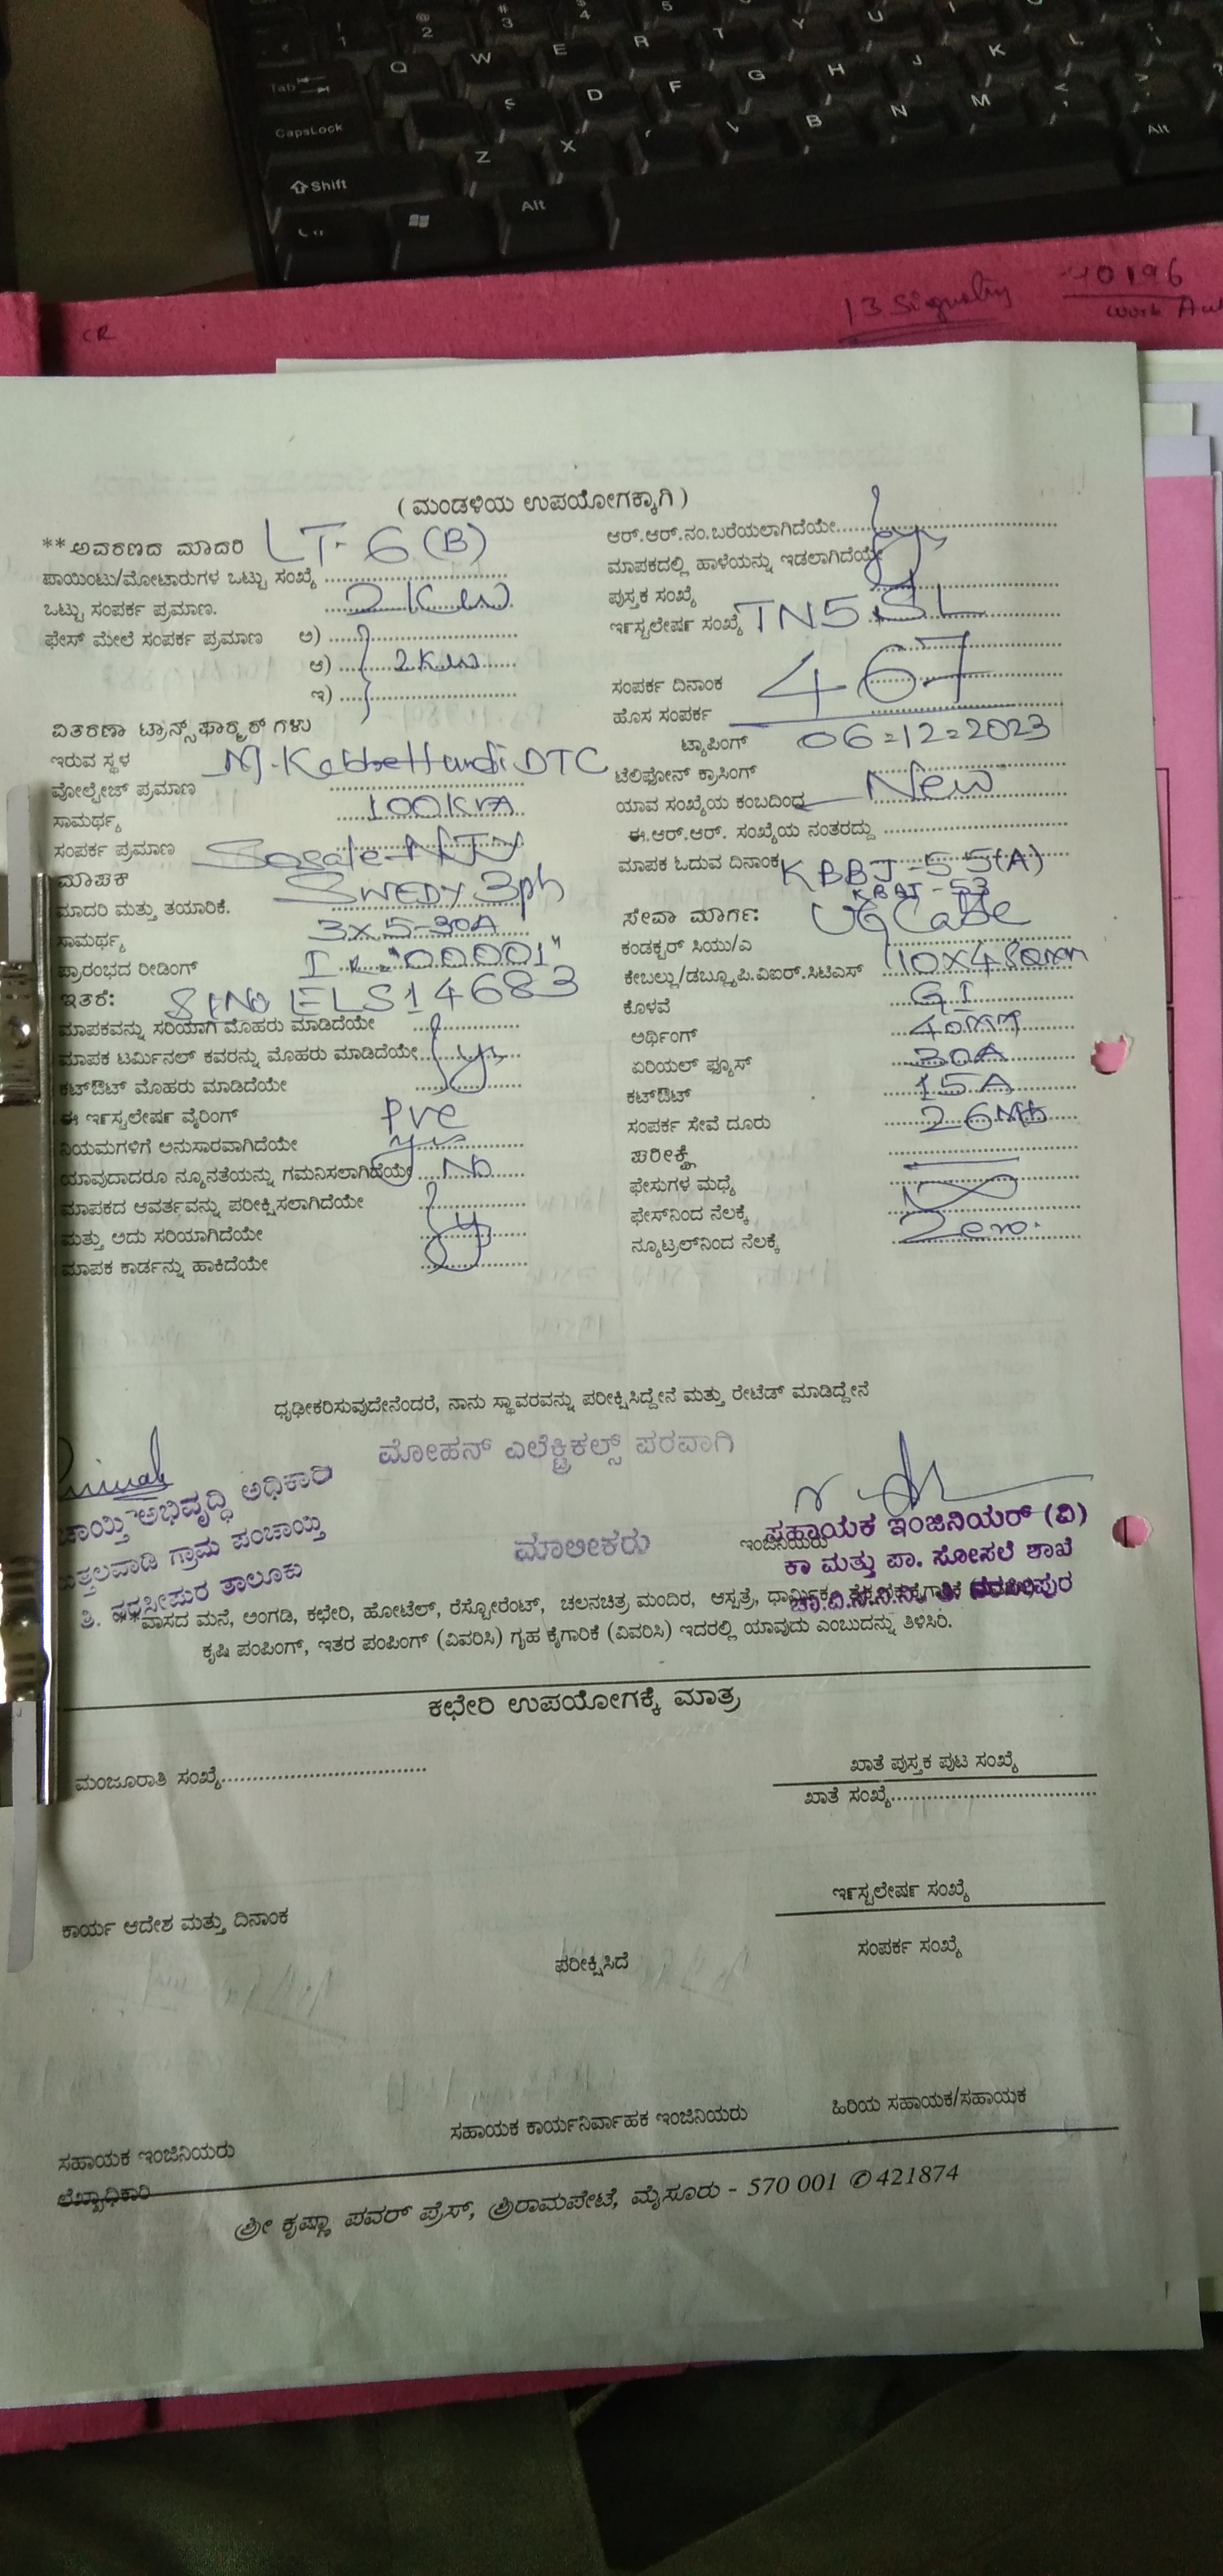 Tab
CapsLock
Shift
Alt
Alt
Q W E R T Y U
D F G H J K L
Z X B N M
CR
13 Signaling
40196
Work
( ಮಂಡಳಿಯ ಉಪಯೋಗಕ್ಕಾಗಿ )
**ಅವರಣದ ಮಾದರಿ LT-6(B)
ಪಾಯಿಂಟು/ಮೋಟಾರುಗಳ ಒಟ್ಟು ಸಂಖ್ಯೆ
ಒಟ್ಟು ಸಂಪರ್ಕ ಪ್ರಮಾಣ. 2 Kw
ಫೇಸ್ ಮೇಲೆ ಸಂಪರ್ಕ ಪ್ರಮಾಣ ಅ)
ಆ) 2Kw
ಇ)
ವಿತರಣಾ ಟ್ರಾನ್ಸ್‌ಫಾರ್ಮರ್ ಗಳು
ಇರುವ ಸ್ಥಳ DTC
ವೋಲ್ಟೇಜ್ ಪ್ರಮಾಣ
ಸಾಮರ್ಥ್ಯ 100KVA
ಸಂಪರ್ಕ ಪ್ರಮಾಣ Sosale-NJY
ಮಾಪಕ
ಮಾದರಿ ಮತ್ತು ತಯಾರಿಕೆ. 3ph
ಸಾಮರ್ಥ್ಯ 3x5-30A
ಪ್ರಾರಂಭದ ರೀಡಿಂಗ್ "00001"
ಇತರೆ: Sl No ELS14683
ಮಾಪಕವನ್ನು ಸರಿಯಾಗಿ ಮೊಹರು ಮಾಡಿದೆಯೇ
ಮಾಪಕ ಟರ್ಮಿನಲ್ ಕವರನ್ನು ಮೊಹರು ಮಾಡಿದೆಯೇ
ಕಟ್‌ಔಟ್ ಮೊಹರು ಮಾಡಿದೆಯೇ
ಈ ಇನ್‌ಸ್ಟಲೇಷನ್ ವೈರಿಂಗ್ PVC
ನಿಯಮಗಳಿಗೆ ಅನುಸಾರವಾಗಿದೆಯೇ yes
ಯಾವುದಾದರೂ ನ್ಯೂನತೆಯನ್ನು ಗಮನಿಸಲಾಗಿದೆಯೇ No
ಮಾಪಕದ ಆವರ್ತವನ್ನು ಪರೀಕ್ಷಿಸಲಾಗಿದೆಯೇ
ಮತ್ತು ಅದು ಸರಿಯಾಗಿದೆಯೇ
ಮಾಪಕ ಕಾರ್ಡನ್ನು ಹಾಕಿದೆಯೇ
ಆರ್.ಆರ್.ನಂ.ಬರೆಯಲಾಗಿದೆಯೇ
ಮಾಪಕದಲ್ಲಿ ಹಾಳೆಯನ್ನು ಇಡಲಾಗಿದೆಯೇ
ಪುಸ್ತಕ ಸಂಖ್ಯೆ
ಇನ್‌ಸ್ಟಲೇಷನ್ ಸಂಖ್ಯೆ TN5SL
467
ಸಂಪರ್ಕ ದಿನಾಂಕ
ಹೊಸ ಸಂಪರ್ಕ
ಟ್ಯಾಪಿಂಗ್ 06=12=2023
ಟೆಲಿಫೋನ್ ಕ್ರಾಸಿಂಗ್
ಯಾವ ಸಂಖ್ಯೆಯ ಕಂಬದಿಂದ New
ಈ.ಆರ್.ಆರ್. ಸಂಖ್ಯೆಯ ನಂತರದ್ದು
ಮಾಪಕ ಓದುವ ದಿನಾಂಕ KBBJ-55(A)
KBBJ-53
ಸೇವಾ ಮಾರ್ಗ: UG Cable
ಕಂಡಕ್ಟರ್ ಸಿಯು/ಎ
ಕೇಬಲ್ಲು/ಡಬ್ಲ್ಯೂ.ಪಿ.ವಿಐಆರ್.ಸಿಟಿಎಸ್
ಕೊಳವೆ GI
ಅರ್ಥಿಂಗ್
ಏರಿಯಲ್ ಫ್ಯೂಸ್ 30A
ಕಟ್‌ಔಟ್ 15A
ಸಂಪರ್ಕ ಸೇವೆ ದೂರು
ಪರೀಕ್ಷೆ
ಫೇಸುಗಳ ಮಧ್ಯೆ
ಫೇಸ್‌ನಿಂದ ನೆಲಕ್ಕೆ ∞
ನ್ಯೂಟ್ರಲ್‌ನಿಂದ ನೆಲಕ್ಕೆ Zero.
ಧೃಢೀಕರಿಸುವುದೇನೆಂದರೆ, ನಾನು ಸ್ಥಾವರವನ್ನು ಪರೀಕ್ಷಿಸಿದ್ದೇನೆ ಮತ್ತು ರೇಟೆಡ್ ಮಾಡಿದ್ದೇನೆ
ಮೋಹನ್ ಎಲೆಕ್ಟ್ರಿಕಲ್ಸ್ ಪರವಾಗಿ
ಮಾಲೀಕರು
ಚಾಯ್ತಿ ಅಭಿವೃದ್ಧಿ ಅಧಿಕಾರಿ
ತ್ತಲವಾಡಿ ಗ್ರಾಮ ಪಂಚಾಯ್ತಿ
ತಿ. ನರಸೀಪುರ ತಾಲೂಕು
ಇಂಜಿನಿಯರು
ಸಹಾಯಕ ಇಂಜಿನಿಯರ್ (ವಿ)
ಕಾ ಮತ್ತು ಪಾ. ಸೋಸಲೆ ಶಾಖೆ
**ವಾಸದ ಮನೆ, ಅಂಗಡಿ, ಕಛೇರಿ, ಹೋಟೆಲ್, ರೆಸ್ಟೋರೆಂಟ್, ಚಲನಚಿತ್ರ ಮಂದಿರ, ಆಸ್ಪತ್ರೆ, ಧಾರ್ಮಿಕ
ಕೃಷಿ ಪಂಪಿಂಗ್, ಇತರ ಪಂಪಿಂಗ್ (ವಿವರಿಸಿ) ಗೃಹ ಕೈಗಾರಿಕೆ (ವಿವರಿಸಿ) ಇದರಲ್ಲಿ ಯಾವುದು ಎಂಬುದನ್ನು ತಿಳಿಸಿರಿ.
ಕಛೇರಿ ಉಪಯೋಗಕ್ಕೆ ಮಾತ್ರ
ಮಂಜೂರಾತಿ ಸಂಖ್ಯೆ
ಖಾತೆ ಪುಸ್ತಕ ಪುಟ ಸಂಖ್ಯೆ
ಖಾತೆ ಸಂಖ್ಯೆ
ಇನ್‌ಸ್ಟಲೇಷನ್ ಸಂಖ್ಯೆ
ಕಾರ್ಯ ಆದೇಶ ಮತ್ತು ದಿನಾಂಕ
ಪರೀಕ್ಷಿಸಿದೆ
ಸಂಪರ್ಕ ಸಂಖ್ಯೆ
ಸಹಾಯಕ ಇಂಜಿನಿಯರು
ಸಹಾಯಕ ಕಾರ್ಯನಿರ್ವಾಹಕ ಇಂಜಿನಿಯರು
ಹಿರಿಯ ಸಹಾಯಕ/ಸಹಾಯಕ
ಲೆಖ್ಖಾಧಿಕಾರಿ
ಶ್ರೀ ಕೃಷ್ಣಾ ಪವರ್ ಪ್ರೆಸ್, ಶ್ರೀರಾಮಪೇಟೆ, ಮೈಸೂರು - 570 001 ✆421874